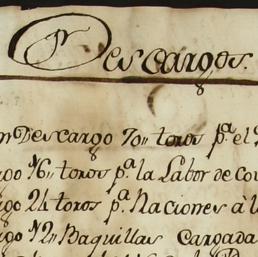 Descargos.
Descargo 70,, toros pª. el
go 16,, toros pª. la Labor de co
go 24 toros pª. Naciones á l
go 12,, Baquillas Cargada